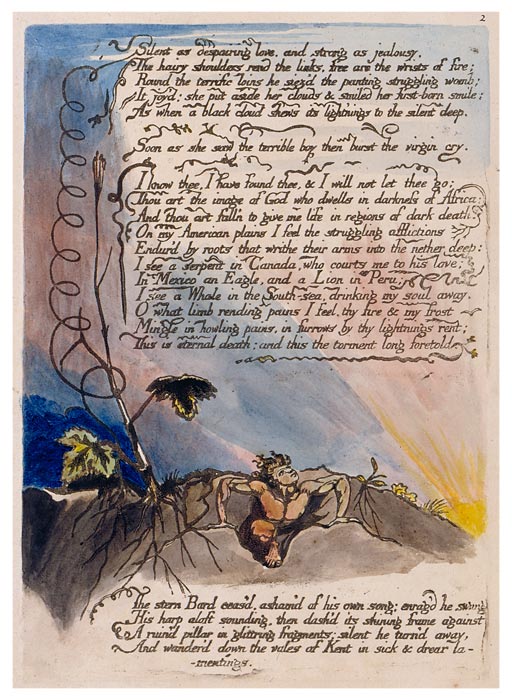 2
Silent as despairing love, and strong as jealousy,
The hairy shoulders rend the links, free are the wrists of fire;
Round the terrific loins he siez'd the panting struggling womb;
It joy'd: she put aside her clouds & smiled her first-born smile;
As when a black cloud shews its lightnings to the silent deep.
Soon as she saw the terrible boy then burst the virgin cry.
I know thee, I have found thee, & I will not let thee go;
Thou art the image of God who dwells in darkness of Africa;
And thou art fall'n to give me life in regions of dark death.
On my American plains I feel the struggling afflictions
Endur'd by roots that writhe their arms into the nether deep:
I see a serpent in Canada, who courts me to his love;
In Mexico an Eagle, and a Lion in Peru;
I see a Whale in the South-sea, drinking my soul away.
O what limb rending pains I feel, thy fire & my frost
Mingle in howling pains, in furrows by thy lightnings rent;
This is eternal death; and this the torment long foretold.
The stern Bard ceas'd, asham'd of his own song; enrag'd he swung
His harp aloft sounding, then dash'd its shining frame against
A ruin'd pillar in glittring fragments; silent he turn'd away,
And wander'd down the vales of Kent in sick & drear la-
-mentings.